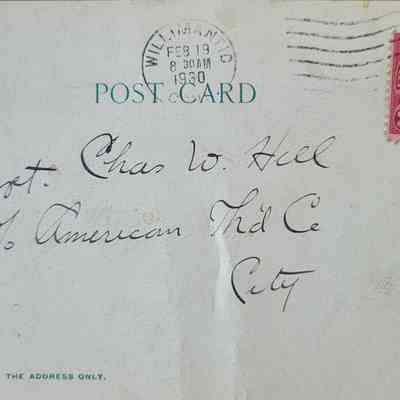 WILLIMANTIC
FEB 19
8 30AM
1930
POST CARD
Chas W. Hill
American Th'd Co
City
THE ADDRESS ONLY.